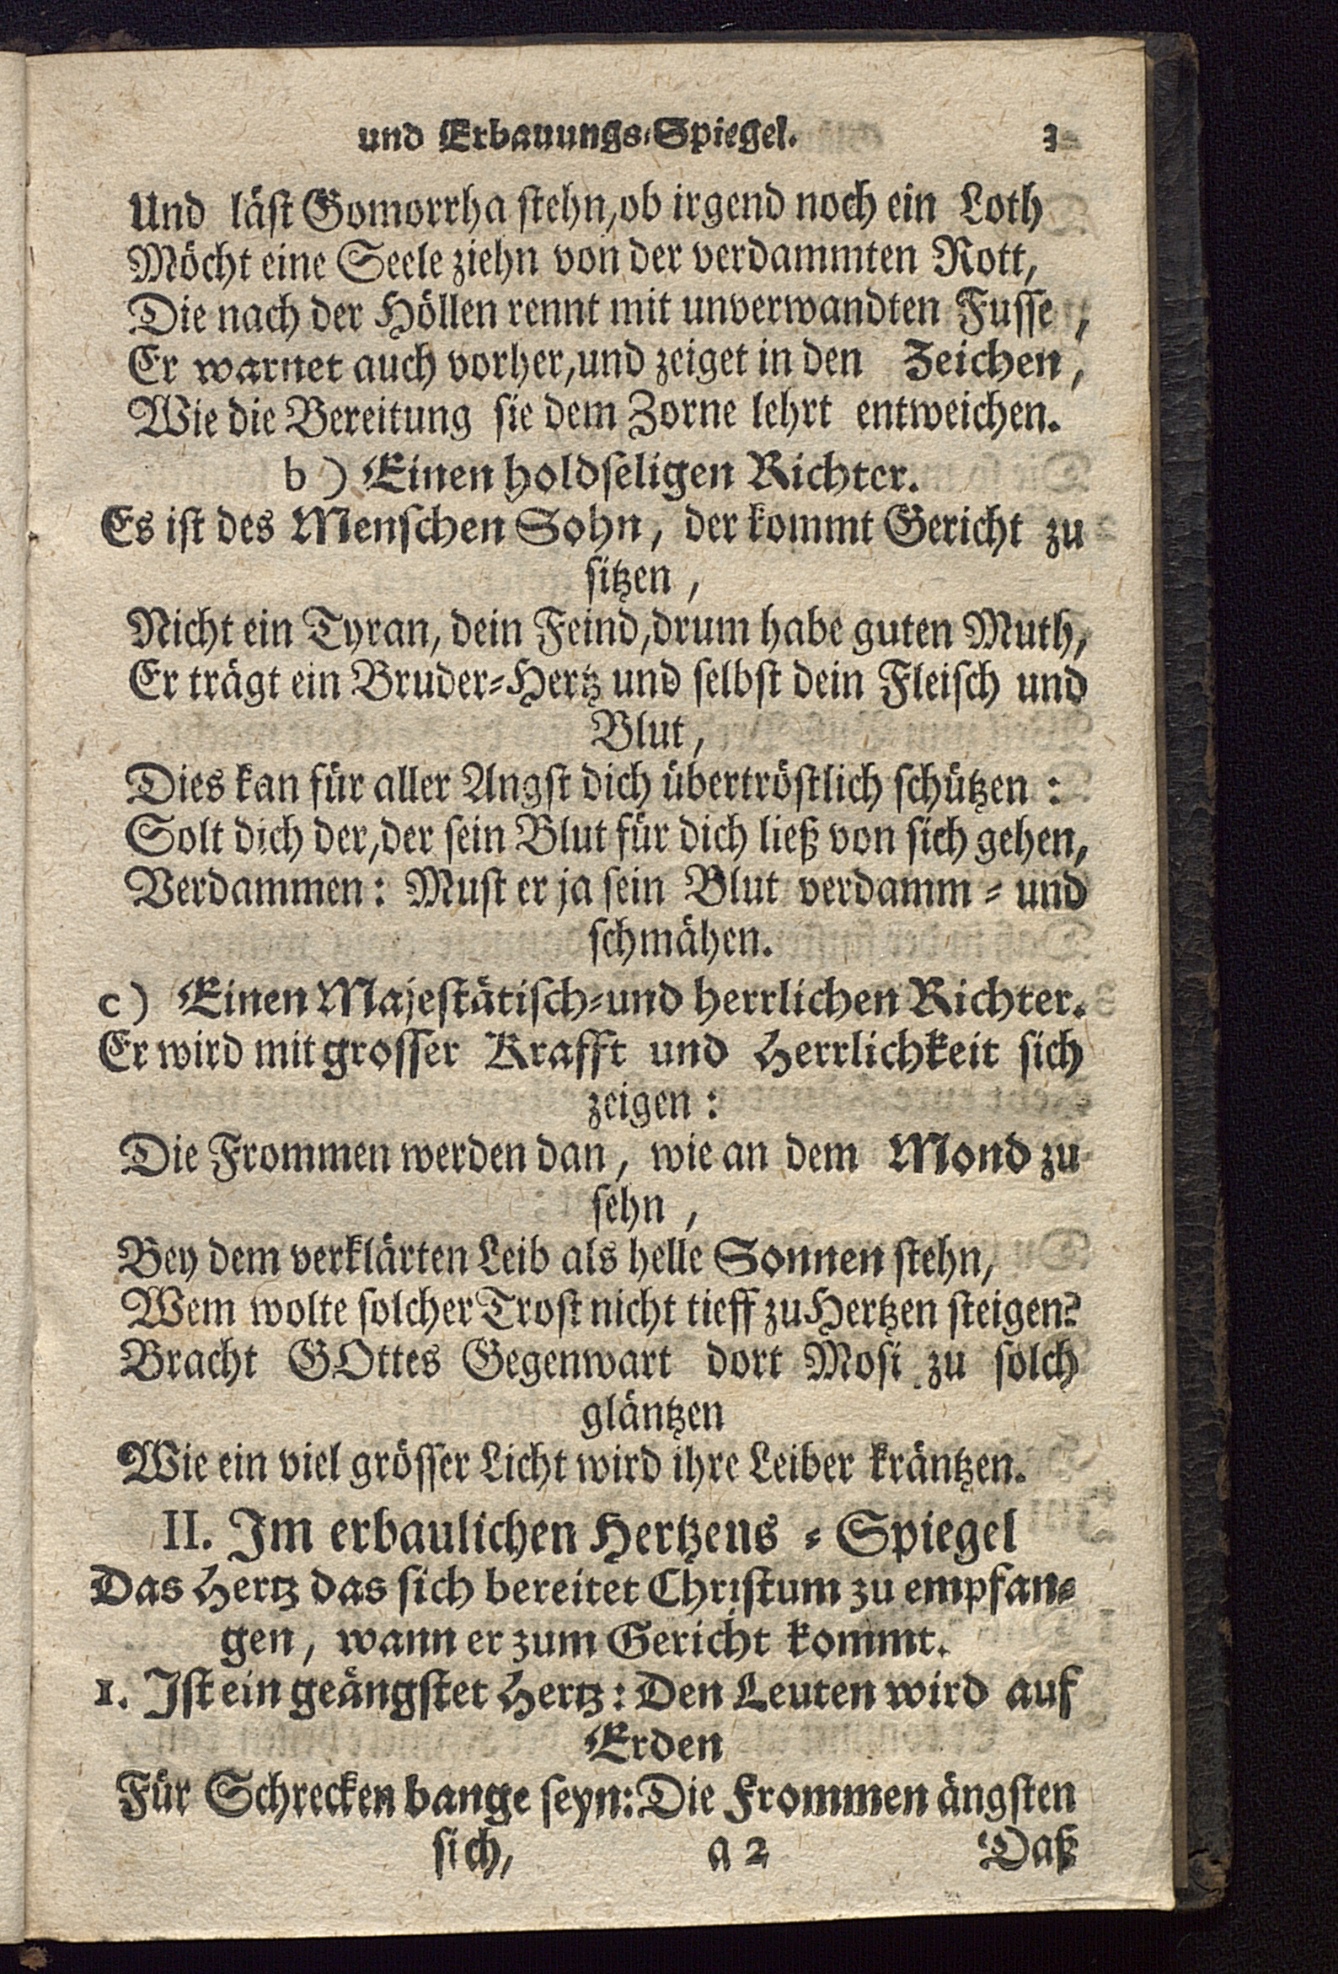 und Erbauungs-Spiegel. 3
Und läst Gomorrha stehn, ob irgend noch ein Loth
Möcht eine Seele ziehn von der verdammten Rott,
Die nach der Höllen rennt mit unverwandten Fusse,
Er warnet auch vorher, und zeiget in den Zeichen,
Wie die Bereitung sie dem Zorne lehrt entweichen.
b) Einen holdseligen Richter.
Es ist des Menschen Sohn, der kommt Gericht zu
sitzen,
Nicht ein Tyran, dein Feind, drum habe guten Muth,
Er trägt ein Bruder-Hertz und selbst dein Fleisch und
Blut,
Dies kan für aller Angst dich übertröstlich schützen:
Solt dich der, der sein Blut für dich ließ von sich gehen,
Verdammen: Must er ja sein Blut verdamm- und
schmähen.
c) Einen Majestätisch-und herrlichen Richter.
Er wird mit grosser Krafft und Herrlichkeit sich
zeigen:
Die Frommen werden dan, wie an dem Mond zu
sehn,
Bey dem verklärten Leib als helle Sonnen stehn,
Wem wolte solcher Trost nicht tieff zu Hertzen steigen?
Bracht GOttes Gegenwart dort Mosi zu solch
gläntzen
Wie ein viel grösser Licht wird ihre Leiber kräntzen.
II. Im erbaulichen Hertzens-Spiegel
Das Hertz das sich bereitet Christum zu empfan-
gen, wann er zum Gericht kommt.
1. Ist ein geängstet Hertz: Den Leuten wird auf
Erden
Für Schrecken bange seyn: Die Frommen ängsten
sich, a 2 Daß